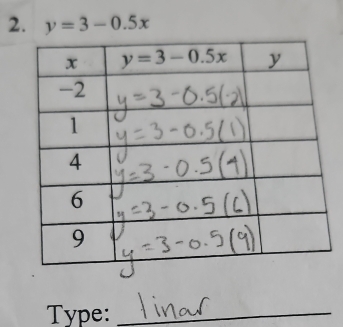 2. y = 3 – 0.5x
x y = 3 – 0.5x y
–2 y = 3 - 0.5(-2)
1 y = 3 - 0.5(1)
4 y = 3 - 0.5(4)
6 y = 3 - 0.5(6)
9 y = 3 - 0.5(9)
Type: linar